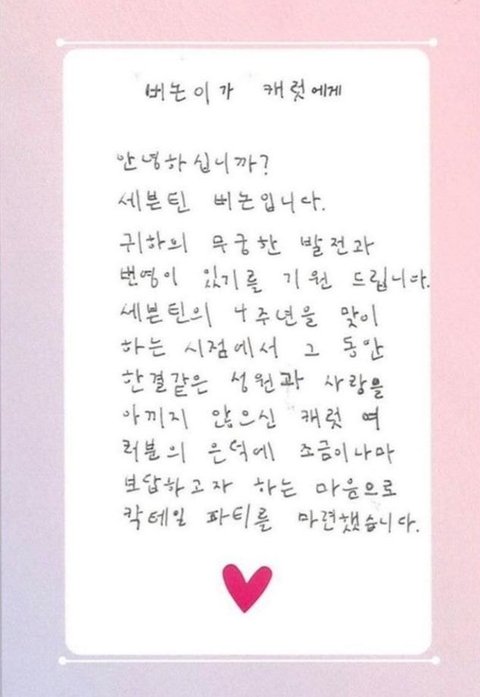 버논이가 캐럿에게
안녕하십니까?
세븐틴 버논입니다.
귀하의 무궁한 발전과
번영이 있기를 기원 드립니다.
세븐틴의 4주년을 맞이
하는 시점에서 그 동안
한결같은 성원과 사랑을
아끼지 않으신 캐럿 여
러분의 은덕에 조금이나마
보답하고자 하는 마음으로
칵테일 파티를 마련했습니다.